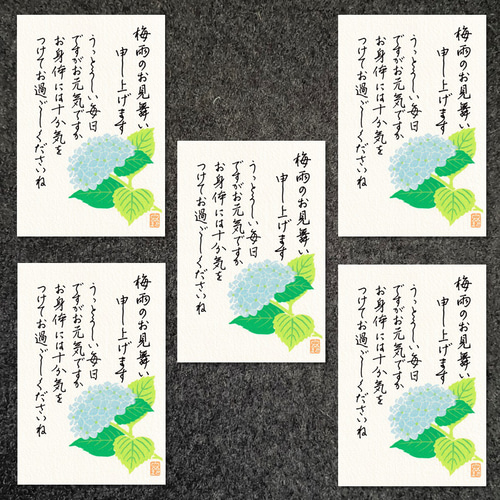 梅雨のお見舞い
申し上げます
うっとうしい毎日
ですがお元気ですか
お身体には十分気を
つけてお過ごしくださいね
梅雨のお見舞い
申し上げます
うっとうしい毎日
ですがお元気ですか
お身体には十分気を
つけてお過ごしくださいね
梅雨のお見舞い
申し上げます
うっとうしい毎日
ですがお元気ですか
お身体には十分気を
つけてお過ごしくださいね
梅雨のお見舞い
申し上げます
うっとうしい毎日
ですがお元気ですか
お身体には十分気を
つけてお過ごしくださいね
梅雨のお見舞い
申し上げます
うっとうしい毎日
ですがお元気ですか
お身体には十分気を
つけてお過ごしくださいね